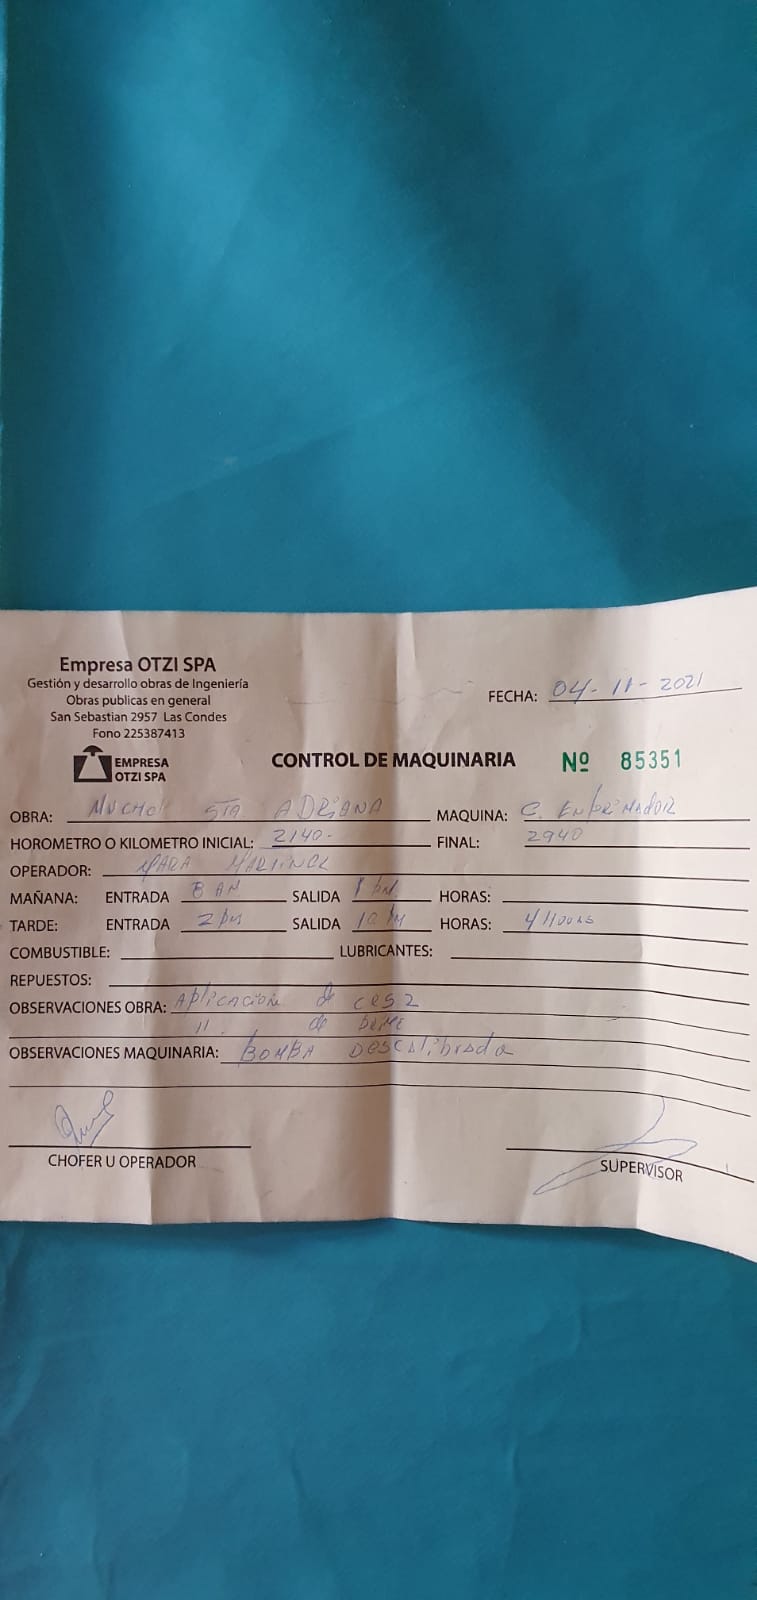 Empresa OTZI SPA
Gestión y desarrollo obras de Ingeniería
Obras publicas en general
San Sebastian 2957 Las Condes
Fono 225387413
FECHA: 04-11-2021
EMPRESA
OTZI SPA
CONTROL DE MAQUINARIA Nº 85351
OBRA: STA ADRIANA MAQUINA: C.
HOROMETRO O KILOMETRO INICIAL: 2140- FINAL: 2940
OPERADOR:
MAÑANA: ENTRADA 8 AM SALIDA 1 PM HORAS:
TARDE: ENTRADA 2 PM SALIDA 10 PM HORAS: 4
COMBUSTIBLE: LUBRICANTES:
REPUESTOS:
OBSERVACIONES OBRA: Aplicacion de
11 de
OBSERVACIONES MAQUINARIA: BOMBA Descalibrada
CHOFER U OPERADOR
SUPERVISOR